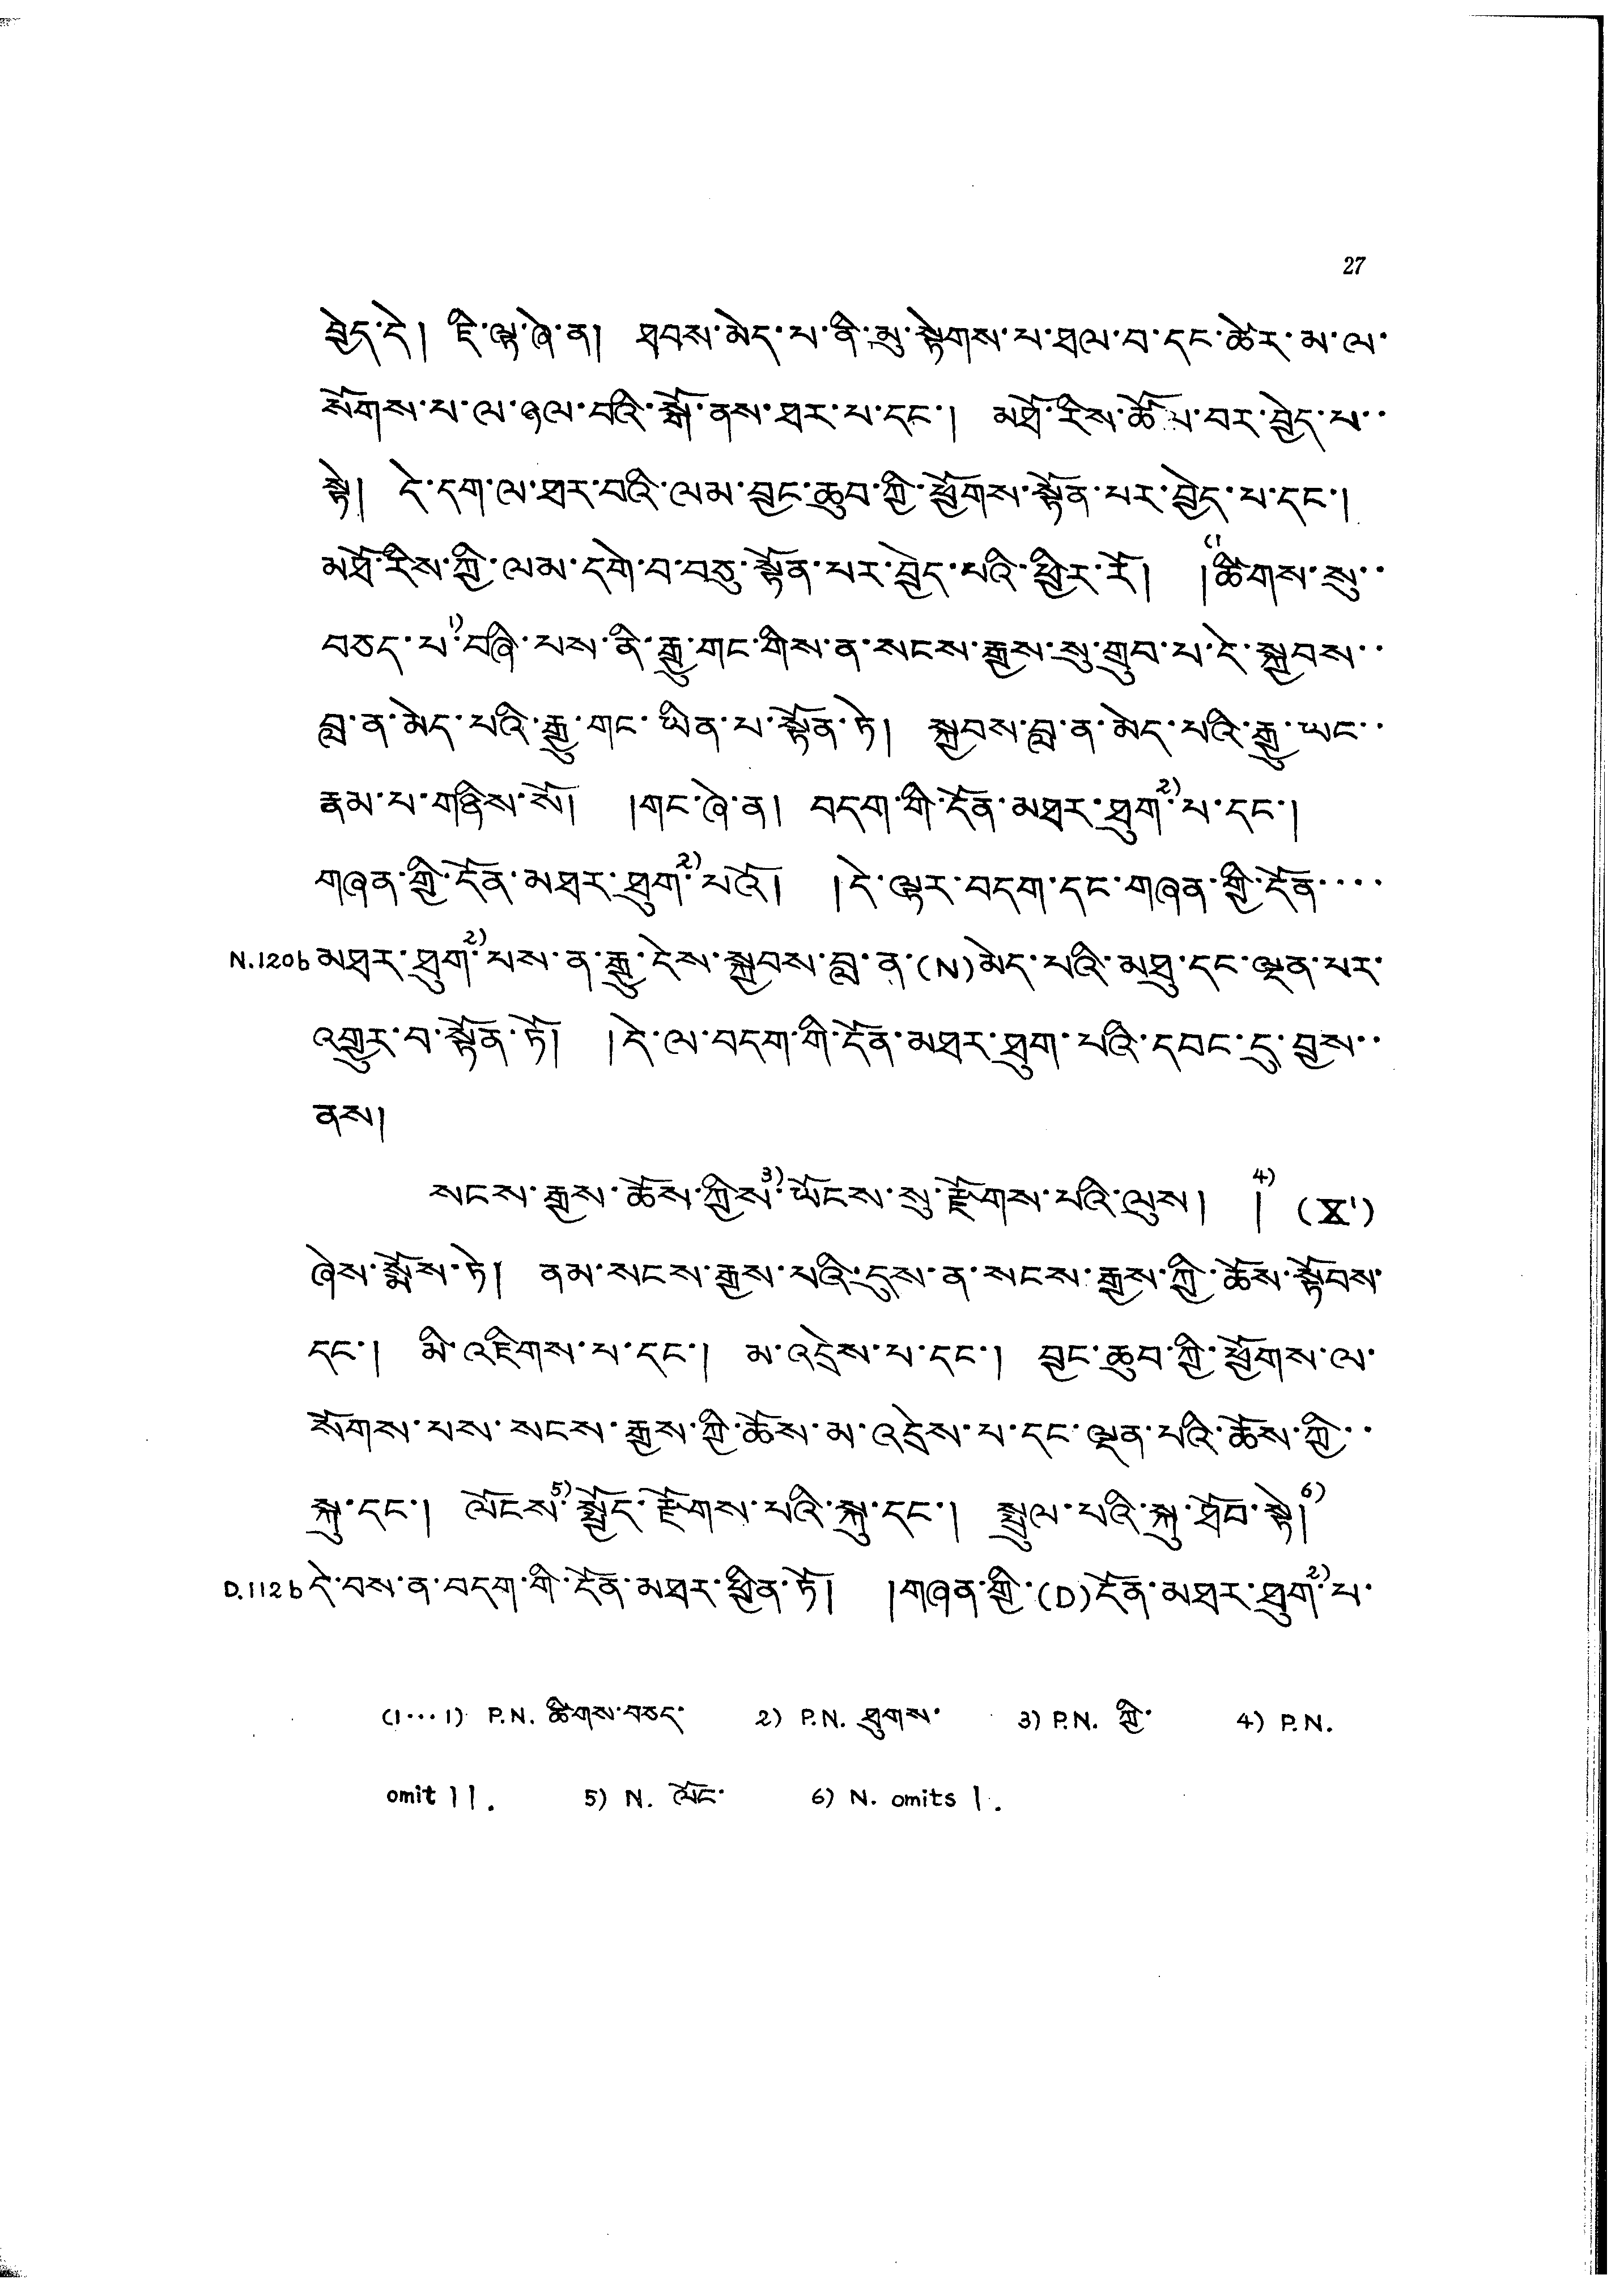 27
བྱེད་དེ། ཇི་ལྟ་ཞེ་ན། ཐབས་མེད་པ་ནི་མུ་སྟེགས་པ་ཐལ་བ་དང་ཚེར་མ་ལ་
སོགས་པ་ལ་ཉལ་བའི་སྒོ་ནས་ཐར་པ་དང་། མཐོ་རིས་ཚོལ་བར་བྱེད་པ་་
སྟེ། དེ་དག་ལ་ཐར་བའི་ལམ་བྱང་ཆུབ་ཀྱི་ཕྱོགས་སྟོན་པར་བྱེད་པ་དང་།
མཐོ་རིས་ཀྱི་ལམ་དགེ་བ་བཅུ་སྟོན་པར་བྱེད་པའི་ཕྱིར་རོ། །(1ཚིགས་སུ་་
བཅད་པ་1)བཞི་པས་ནི་རྒྱུ་གང་གིས་ན་སངས་རྒྱས་སུ་གྲུབ་པ་དེ་སྐྱབས་་
བླ་ན་མེད་པའི་རྒྱུ་གང་ཡིན་པ་སྟོན་ཏེ། སྐྱབས་བླ་ན་མེད་པའི་རྒྱུ་ཡང་་
རྣམ་པ་གཉིས་སོ། །གང་ཞེ་ན། བདག་གི་དོན་མཐར་ཐུག་2)པ་དང་།
གཞན་གྱི་དོན་མཐར་ཐུག་2)པའོ། །དེ་ལྟར་བདག་དང་གཞན་གྱི་དོན་་་་
N.120b མཐར་ཐུག་2)པས་ན་རྒྱུ་དེས་སྐྱབས་བླ་ན་(N)མེད་པའི་མཐུ་དང་ལྡན་པར་
འགྱུར་བ་སྟོན་ཏོ། །དེ་ལ་བདག་གི་དོན་མཐར་ཐུག་པའི་དབང་དུ་བྱས་་
ནས།
སངས་རྒྱས་ཆོས་ཀྱིས་3)ཡོངས་སུ་རྫོགས་པའི་ལུས། །4) (X')
ཞེས་སྨོས་ཏེ། ནམ་སངས་རྒྱས་པའི་དུས་ན་སངས་རྒྱས་ཀྱི་ཆོས་སྟོབས་
དང་། མི་འཇིགས་པ་དང་། མ་འདྲེས་པ་དང་། བྱང་ཆུབ་ཀྱི་ཕྱོགས་ལ་
སོགས་པས་སངས་རྒྱས་ཀྱི་ཆོས་མ་འདྲེས་པ་དང་ལྡན་པའི་ཆོས་ཀྱི་་
སྐུ་དང་། ལོངས་5)སྤྱོད་རྫོགས་པའི་སྐུ་དང་། སྤྲུལ་པའི་སྐུ་ཐོབ་སྟེ།6)
D.112b དེ་བས་ན་བདག་གི་དོན་མཐར་ཕྱིན་ཏོ། །གཞན་གྱི་(D)དོན་མཐར་ཐུག་2)པ་
(1···1) P.N. ཚིགས་བཅད་ 2) P.N. ཐུགས་ 3) P.N. ཀྱི་ 4) P.N.
omit །།. 5) N. ལོང་ 6) N. omits །.